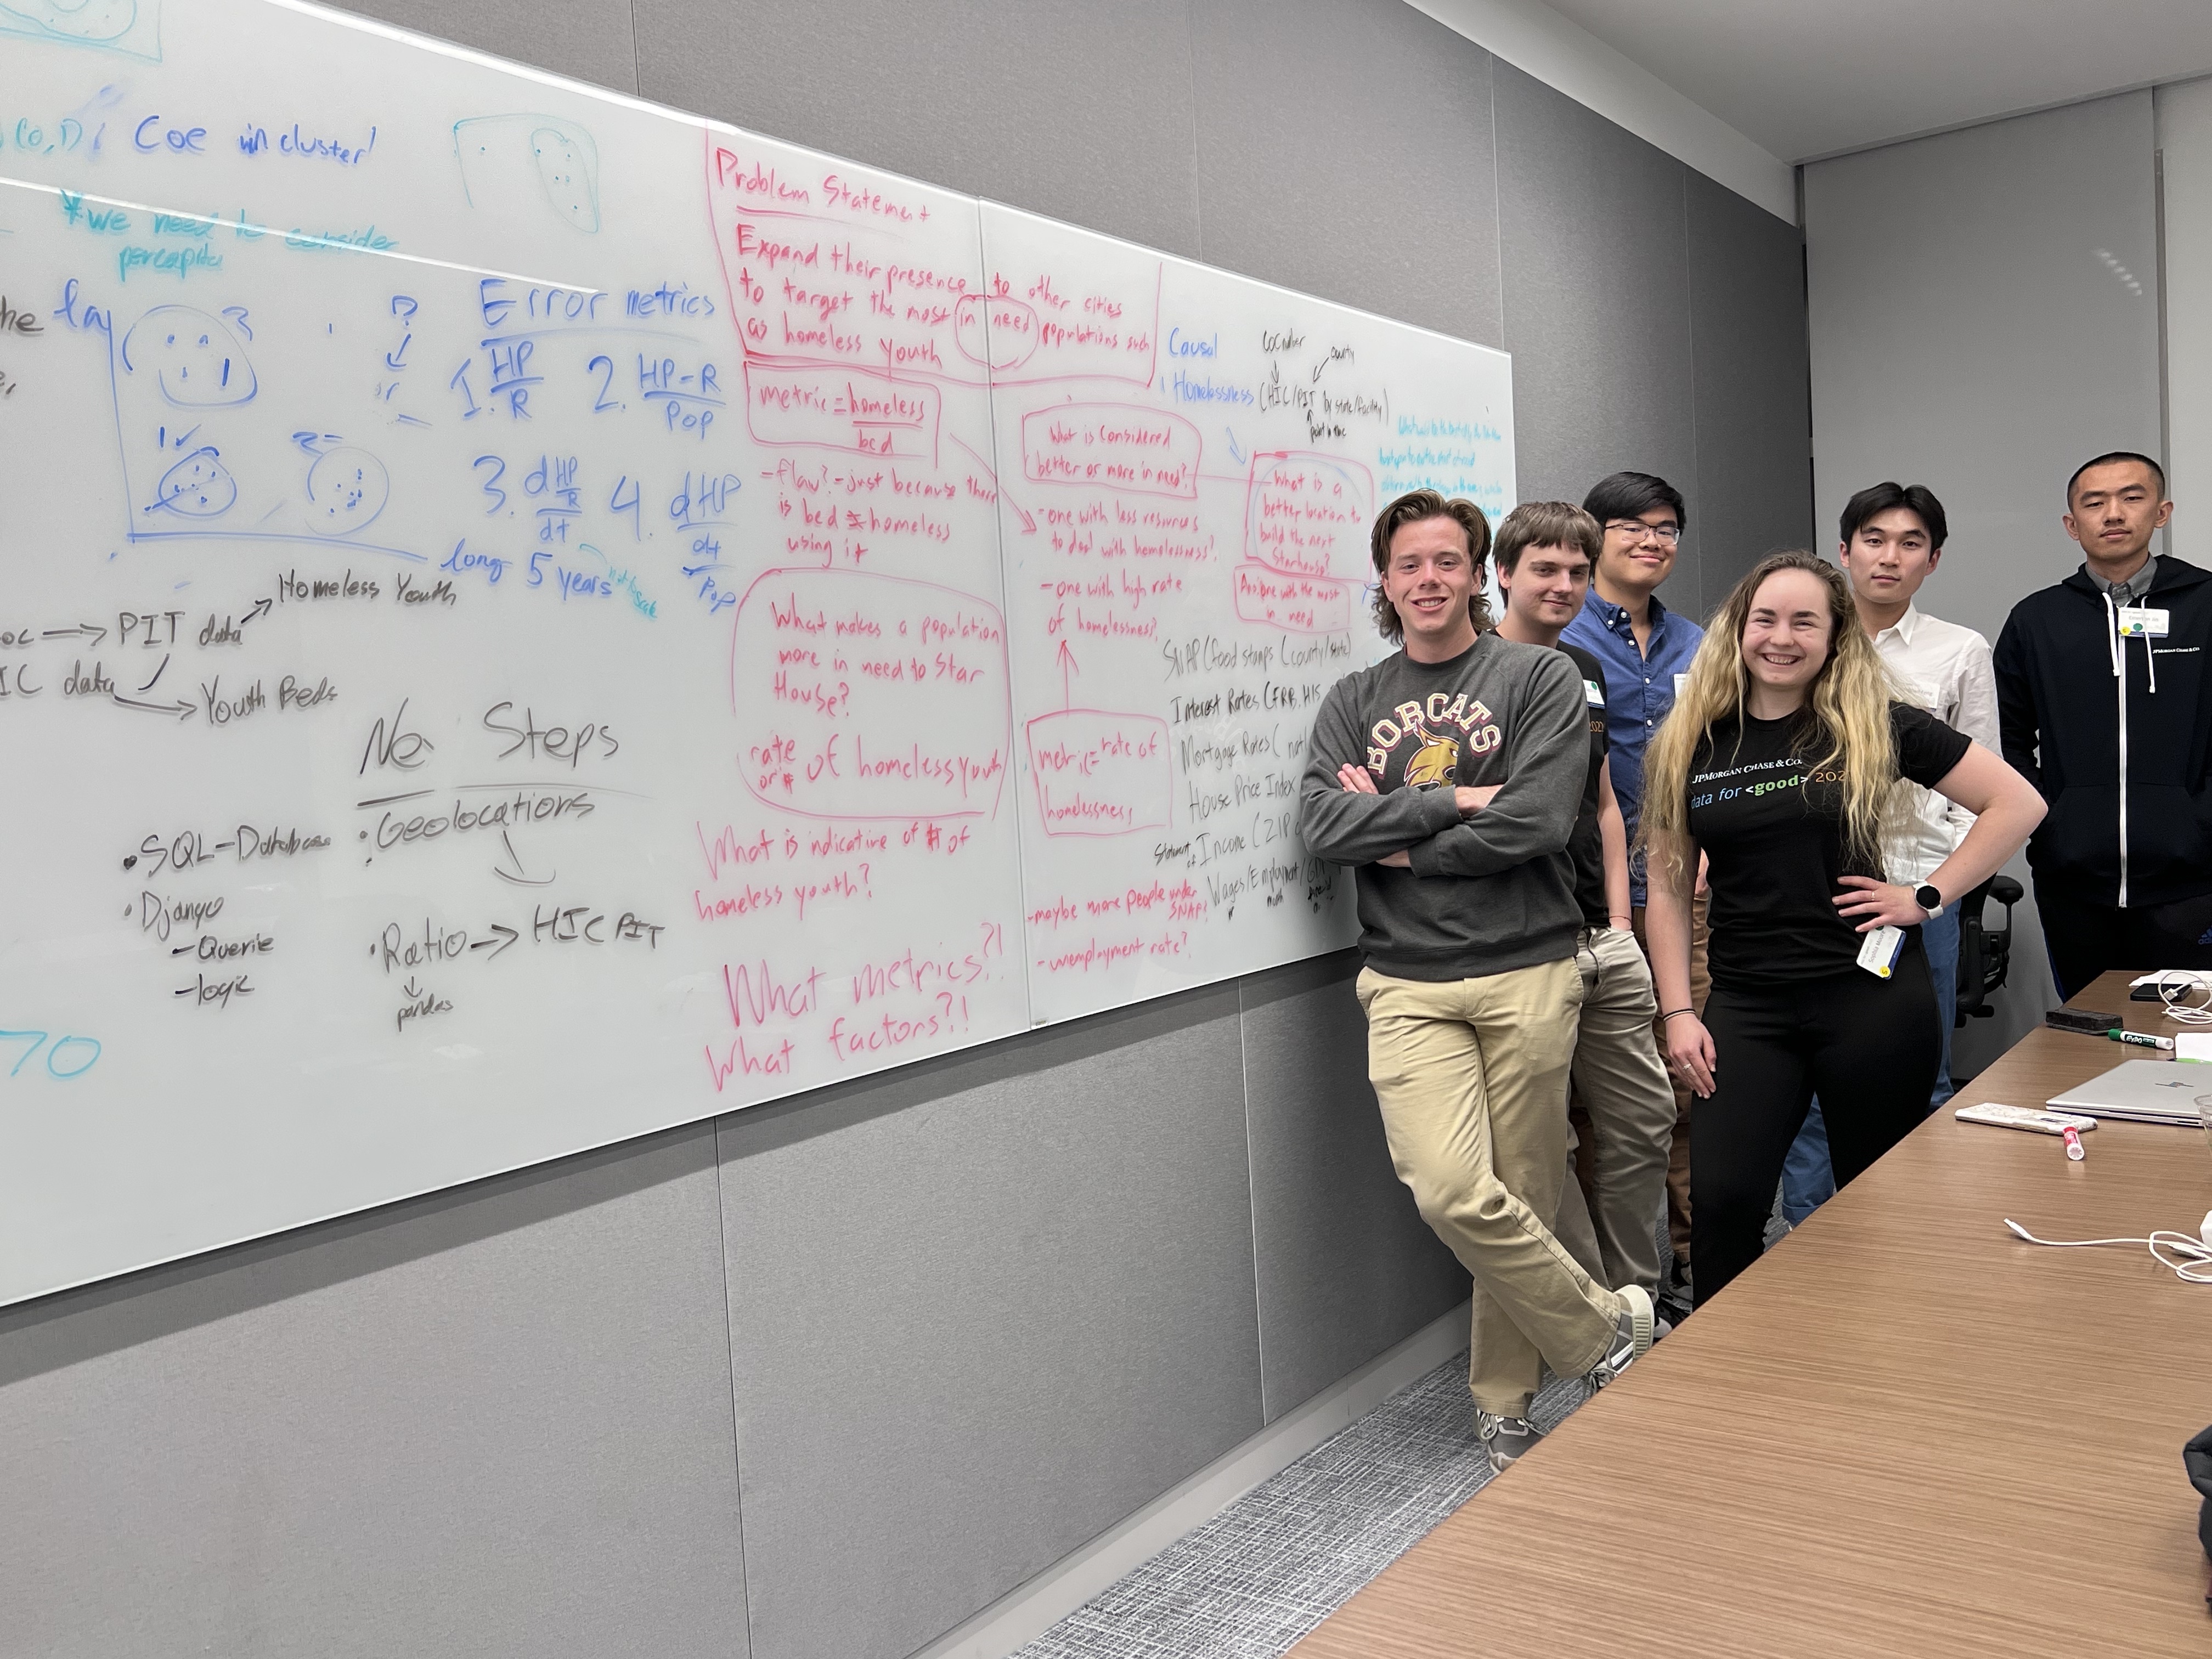 (0,1)
Coe in cluster
*we need to consider
percapita
he
lag
3
1
1✓
2-
long 5 years
Error metrics
1. HP
R
2. HP-R
Pop
3. dHP
R
dt
4. dHP
dt
Pop
oc → PIT data
Homeless Youth
IC data
Youth Beds
Steps
•Geolocations
•SQL-Database
•Django
-Querie
-logic
•Ratio → HIC PIT
pandas
70
Problem Statement
Expand their presence to other cities
to target the most in need populations such
as homeless youth
metric = homeless
bed
-flaw? - just because there
is bed ≠ homeless
using it
What makes a population
more in need to Star
House?
rate
or # of homeless youth
What is indicative of # of
homeless youth?
What metrics?!
What factors?!
What is considered
better or more in need?
-one with less resources
to deal with homelessness?
-one with high rate
of homelessness?
metric = rate of
homelessness
-maybe more people under
SNAP?
-unemployment rate?
Causal
Homelessness
(HIC/PIT by state/facility)
county
point in time
What is a
better location to
build the next
Starhouse?
one with the most
in need
SNAP (food stamps (county/state)
Interest Rates (FRB, H15
Mortgage Rates (
House Price Index
Income (ZIP
Wages/Employment/
BOBCATS
JPMORGAN CHASE & CO.
data for <good> 202
JPMORGAN CHASE & CO.
EXPO